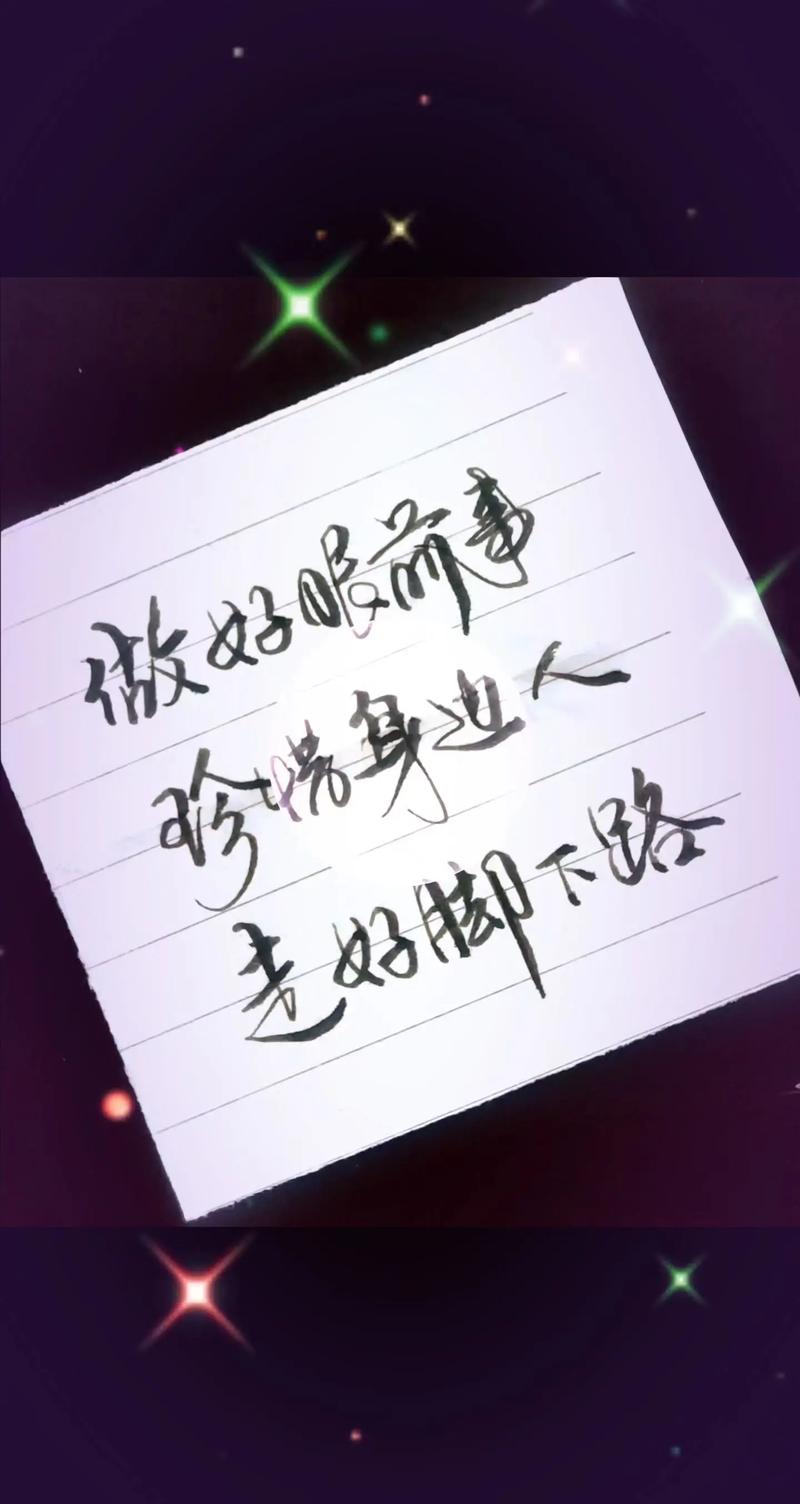 做好眼前事
珍惜身边人
走好脚下路